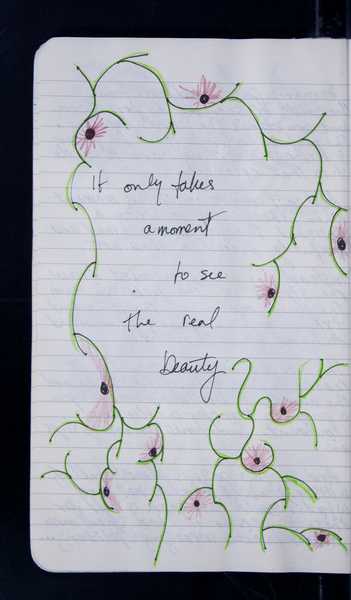 It only takes
a moment
to see
the real
beauty